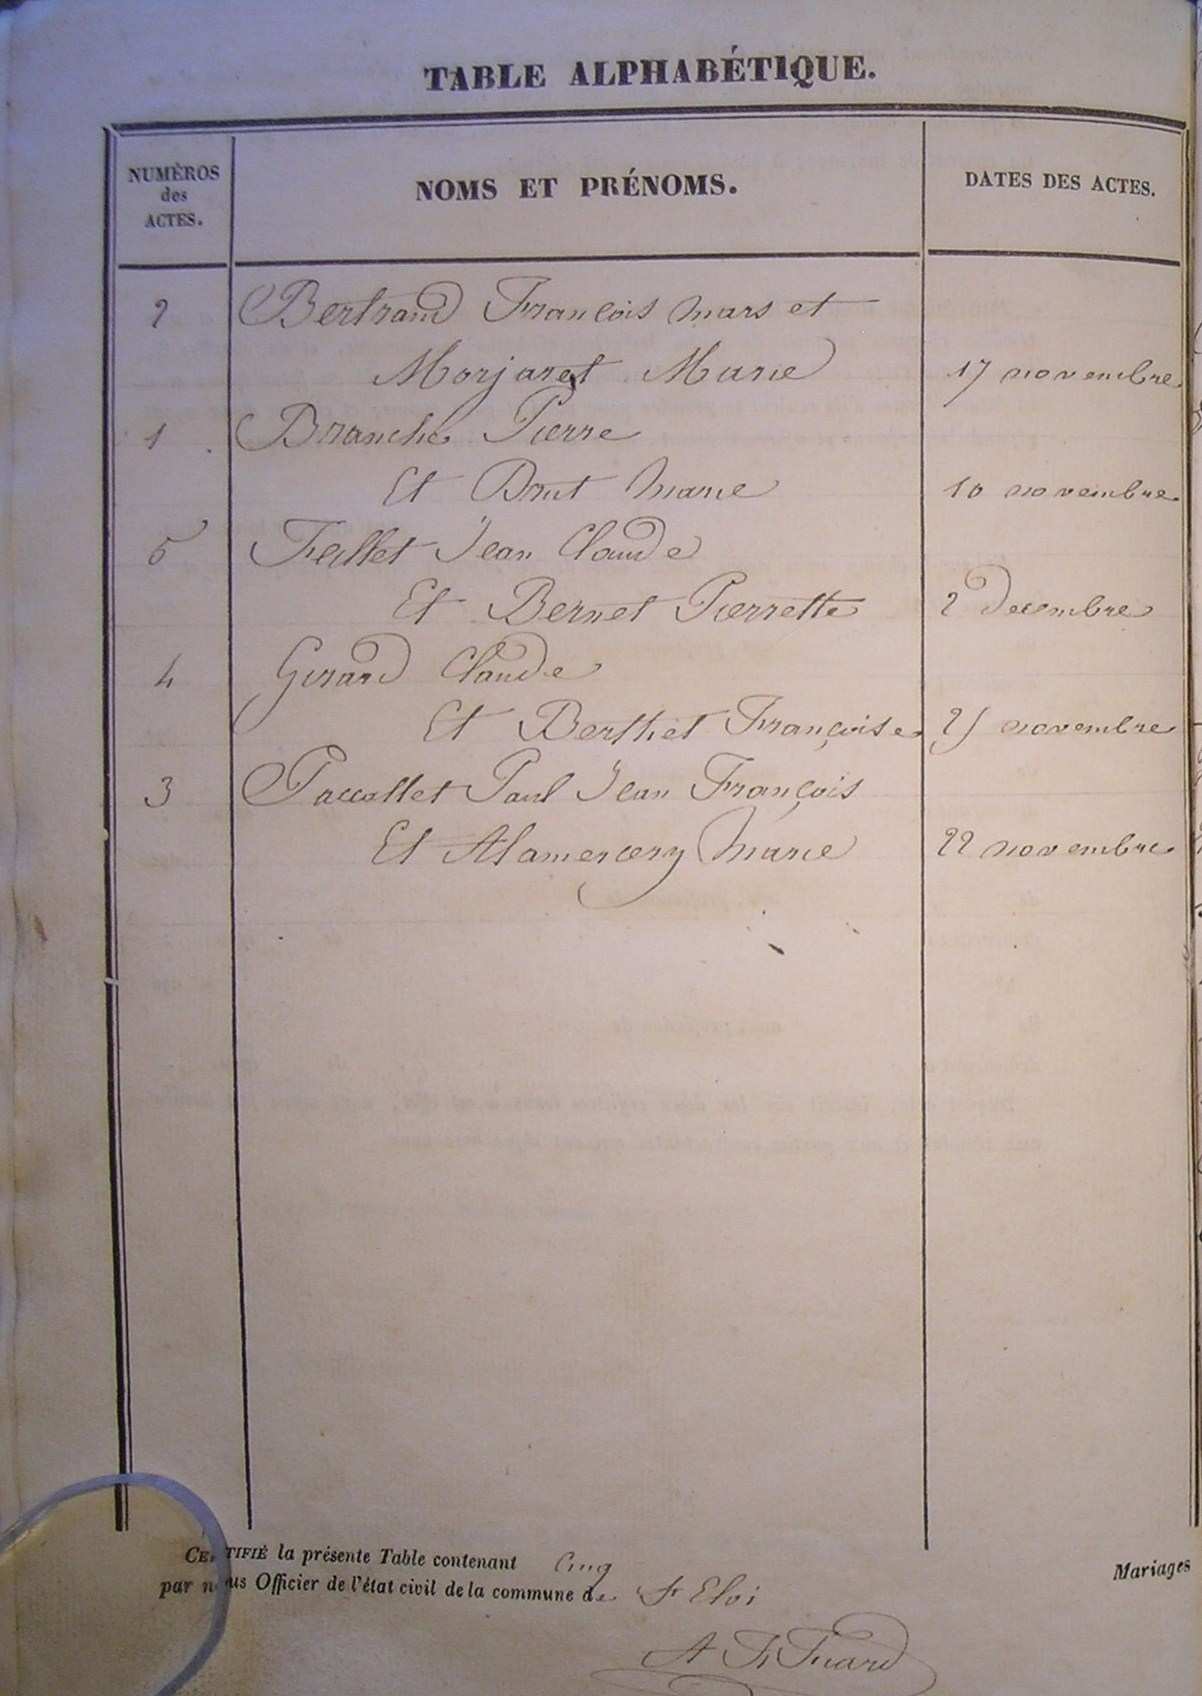 TABLE ALPHABÉTIQUE.
NUMÉROS des ACTES.
NOMS ET PRÉNOMS.
DATES DES ACTES.
2 Bertrand François Mars et
Morjaret Marie 17 novembre
1 Branche Pierre
Et Brut Marie 10 novembre
5 Feillet Jean Claude
Et Bernet Pierrette 2 Decembre
4 Girard Claude
Et Berthet Françoise 25 novembre
3 Paccallet Paul Jean François
Et Alamercery Marie 22 novembre
CERTIFIÉ la présente Table contenant Cinq Mariages
par nous Officier de l'état civil de la commune de St Eloi